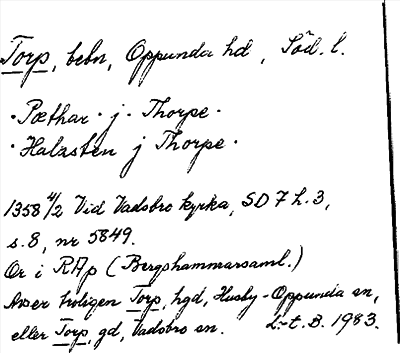 Torp, bebn, Oppunda hd, Söd. l.
· Pæthar · j · Thorpe ·
· Halzsten j Thorpe ·
1358 4/2 Vid Vadsbro kyrka, SD 7 h. 3,
s. 8, nr 5849.
Or i RAp (Bergshammarsaml.)
Avser troligen Torp, hgd, Husby-Oppunda sn,
eller Torp, gd, Vadsbro sn. L-t. B. 1983.